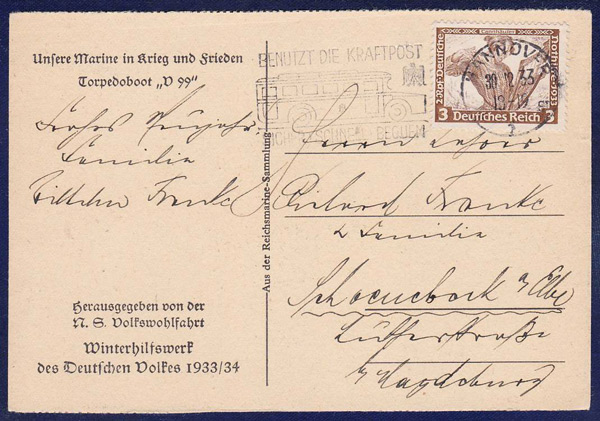 Unsere Marine in Krieg und Frieden
Torpedoboot „V 99“
Frohes Neujahr
Familia
Wilhelm Franke
Herausgegeben von der
N. S. Volkswohlfahrt
Winterhilfswerk
des Deutschen Volkes 1933/34
Aus der Reichsmarine-Sammlung
BENUTZT DIE KRAFTPOST
BEQUEM
HANNOVER
30.12.33
Tannhäuser
2.Rpf. Deutsche
Nothilfe 1933
3 Deutsches Reich 3
Herrn
Richard Franke
& Familia
Schoenebeck a/Elbe
Lutherstraße
b/Magdeburg